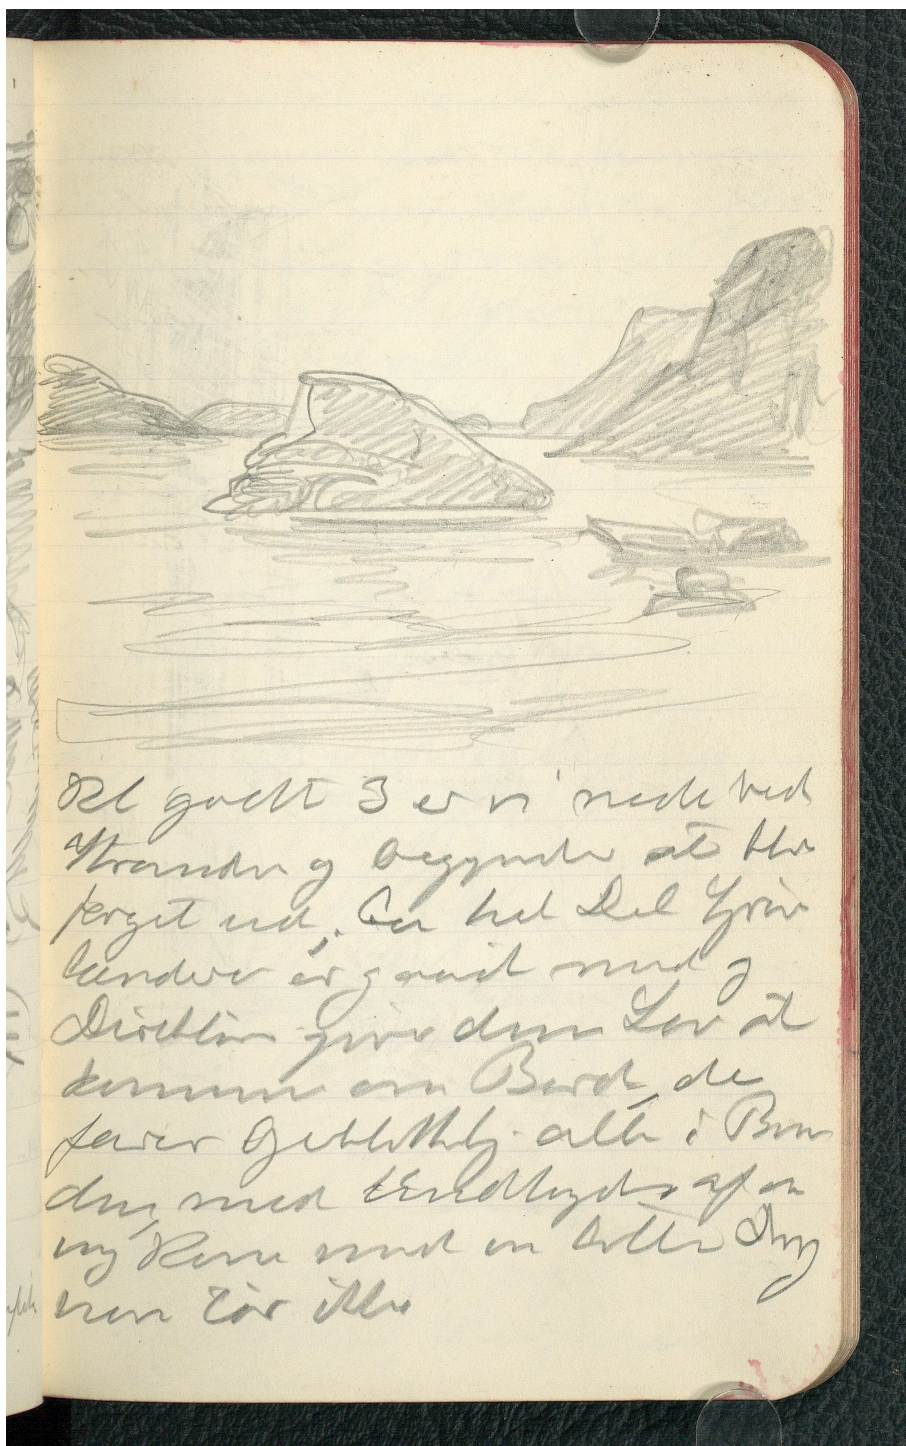 Kl godt 3 er vi nede ved
Stranden og begynder at bli
færget ud, En hel Del Grøn
lændere er gaaet med og
Direktøren giver dem Lov at
komme om Bord, de
farer alle i Bun
den, med Undtagelse af en
ung Kone med en lille Dreng
hun tør ikke